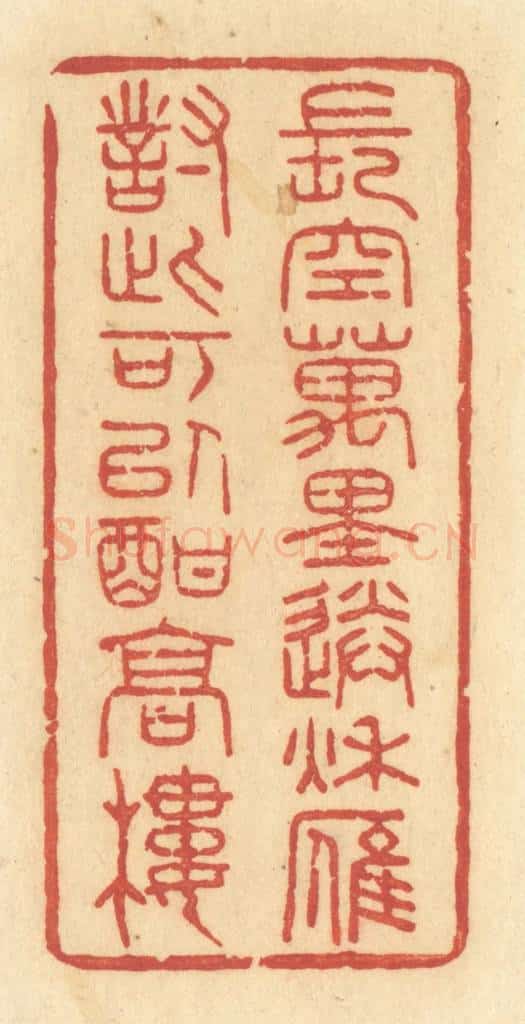 長空萬里送秌雁
對此可㠯酣高樓
Shufawang.CN